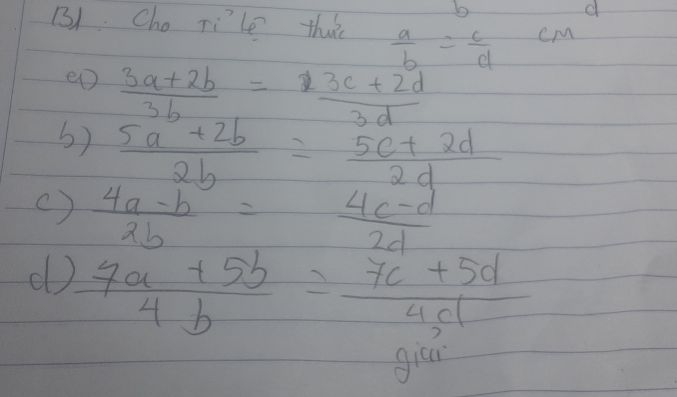 b d
B1. Cho Tỉ lệ thức a/b = c/d CM
a) 3a+2b/3b = 3c+2d/3d
b) 5a+2b/2b = 5c+2d/2d
c) 4a-b/2b = 4c-d/2d
d) 7a+5b/4b = 7c+5d/4d
giải